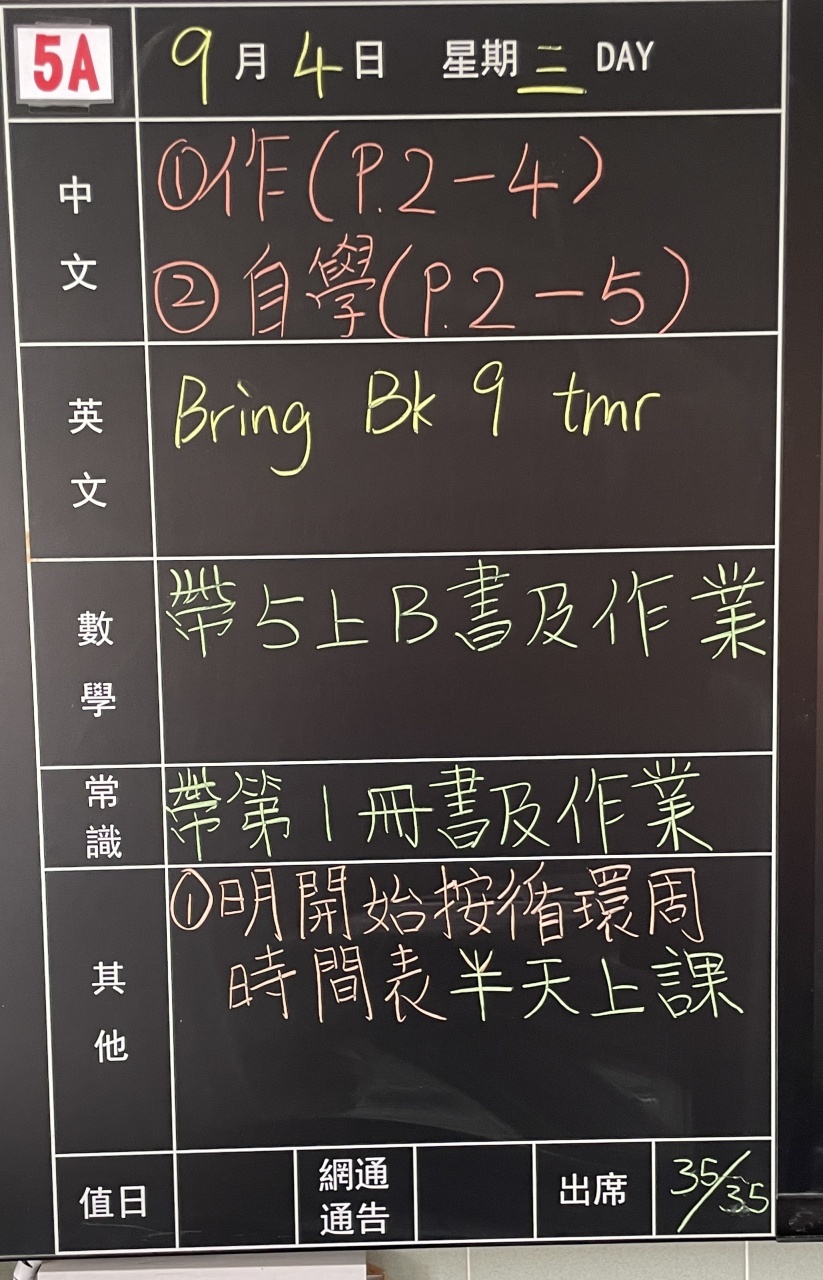 5A 9月4日 星期三 DAY
中文
①作(P.2-4)
②自學(P.2-5)
英文
Bring Bk 9 tmr
數學
帶5上B書及作業
常識
帶第1冊書及作業
其他
①明開始按循環周
時間表半天上課
值日
網通
通告
出席
35/35